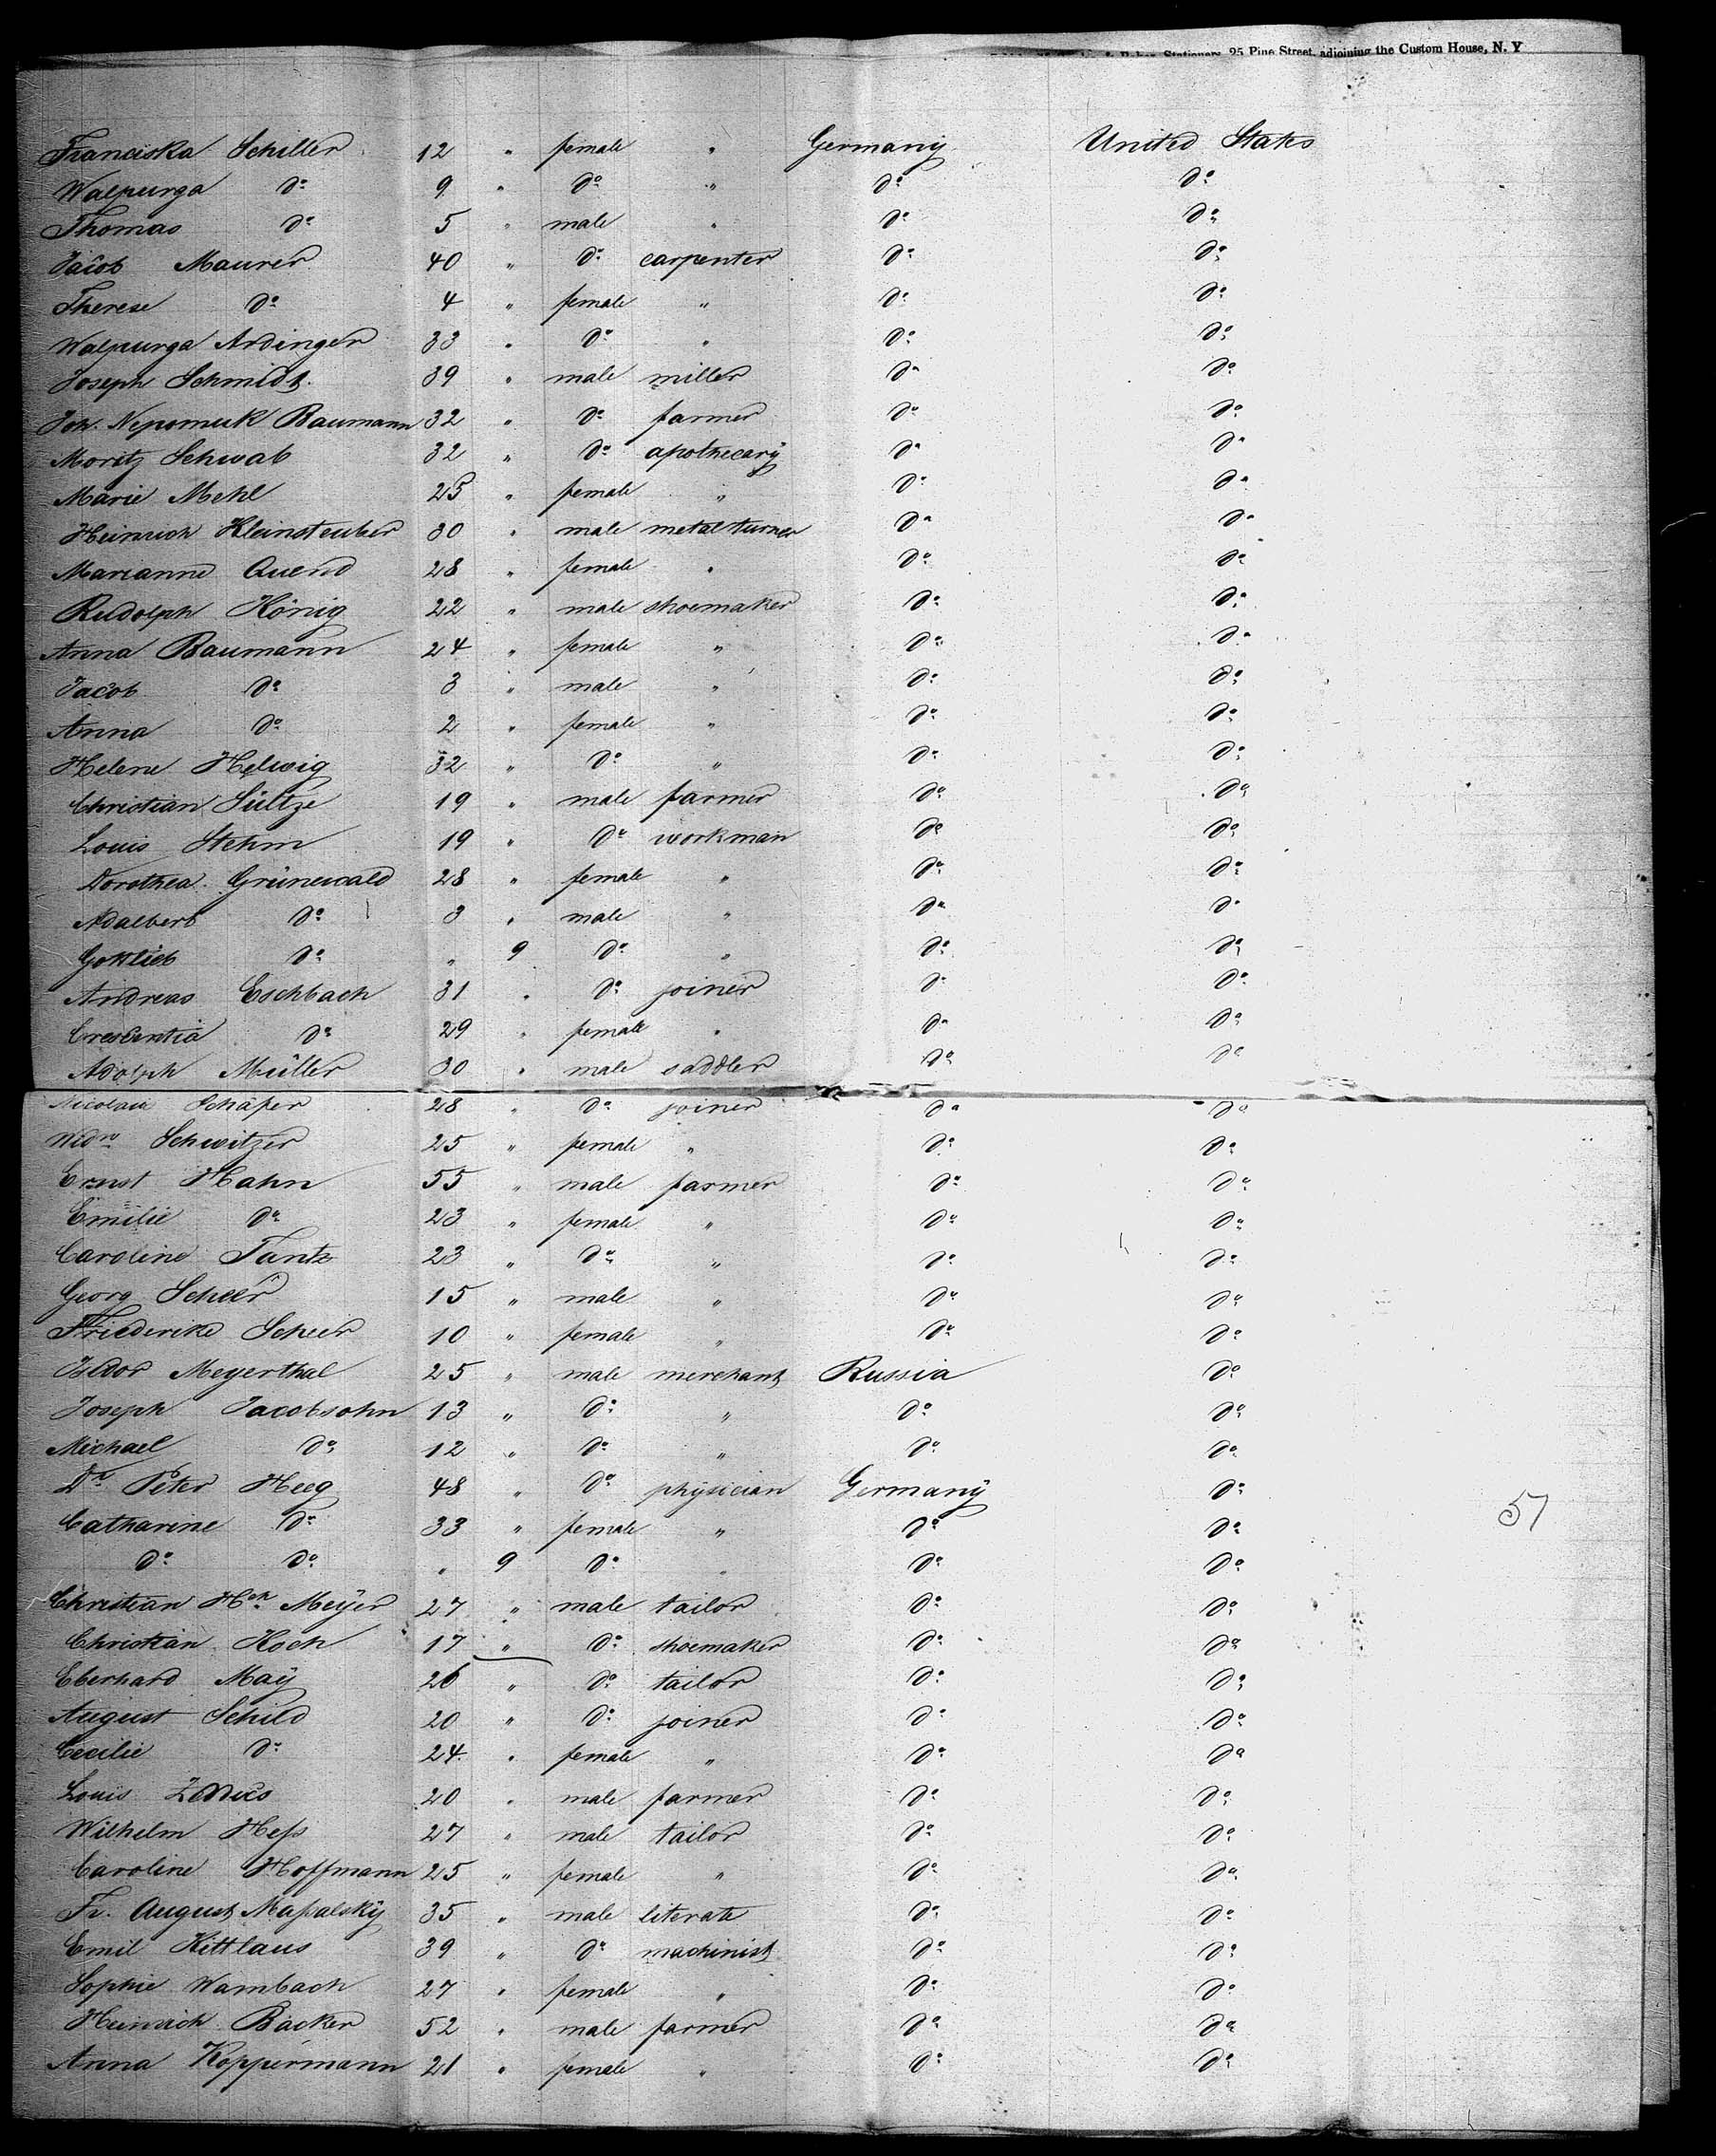 Stationers, 25 Pine Street, adjoining the Custom House, N. Y
Franciska Schiller 12 " female " Germany United States
Walpurga do 9 " do " do do
Thomas do 5 " male " do do
Jacob Maurer 40 " do carpenter do do
Therese do 4 " female " do do
Walpurga Ardinger 33 " do " do do
Joseph Schmidt 39 " male miller do do
Joh. Nepomuk Baumann 32 " do farmer do do
Moritz Schwab 32 " do apothecary do do
Marie Mehl 25 " female " do do
Heinrich Kleinsteuber 30 " male metal turner do do
Marianne Quend 28 " female " do do
Rudolph König 22 " male shoemaker do do
Anna Baumann 24 " female " do do
Jacob do 3 " male " do do
Anna do 2 " female " do do
Helene Helwig 32 " do " do do
Christian Sültze 19 " male farmer do do
Louis Stehm 19 " do workman do do
Dorothea Grünewald 28 " female " do do
Adalbert do 3 " male " do do
Gottlieb do " 9 do " do do
Andreas Eschbach 31 " do joiner do do
Crescentia do 29 " female " do do
Adolph Müller 30 " male saddler do do
Nicolaus Schäfer 28 " do joiner do do
Wdw Schwitzer 25 " female " do do
Ernst Hahn 55 " male farmer do do
Emilie do 23 " female " do do
Caroline Tantz 23 " do " do do
Georg Scheer 15 " male " do do
Friederike Scheer 10 " female " do do
Isidor Meyerthal 25 " male merchant Russia do
Joseph Jacobsohn 13 " do " do do
Michael do 12 " do " do do
Dr Peter Heeg 48 " do physician Germany do
Catharine do 33 " female " do do 57
do do " 9 do " do do
Christian Hch Meÿer 27 " male tailor do do
Christian Koch 17 " do shoemaker do do
Eberhard Maÿ 26 " do tailor do do
August Schild 20 " do joiner do do
Cecilie do 24 " female " do do
Louis 20 " male farmer do do
Wilhelm Heſs 27 " male tailor do do
Caroline Hoffmann 25 " female " do do
Fr. August Maſsalskÿ 35 " male literate do do
Emil Kittlaus 39 " do machinist do do
Sophie Wambach 27 " female " do do
Heinrich Bäcker 52 " male farmer do do
Anna Koppermann 21 " female " do do